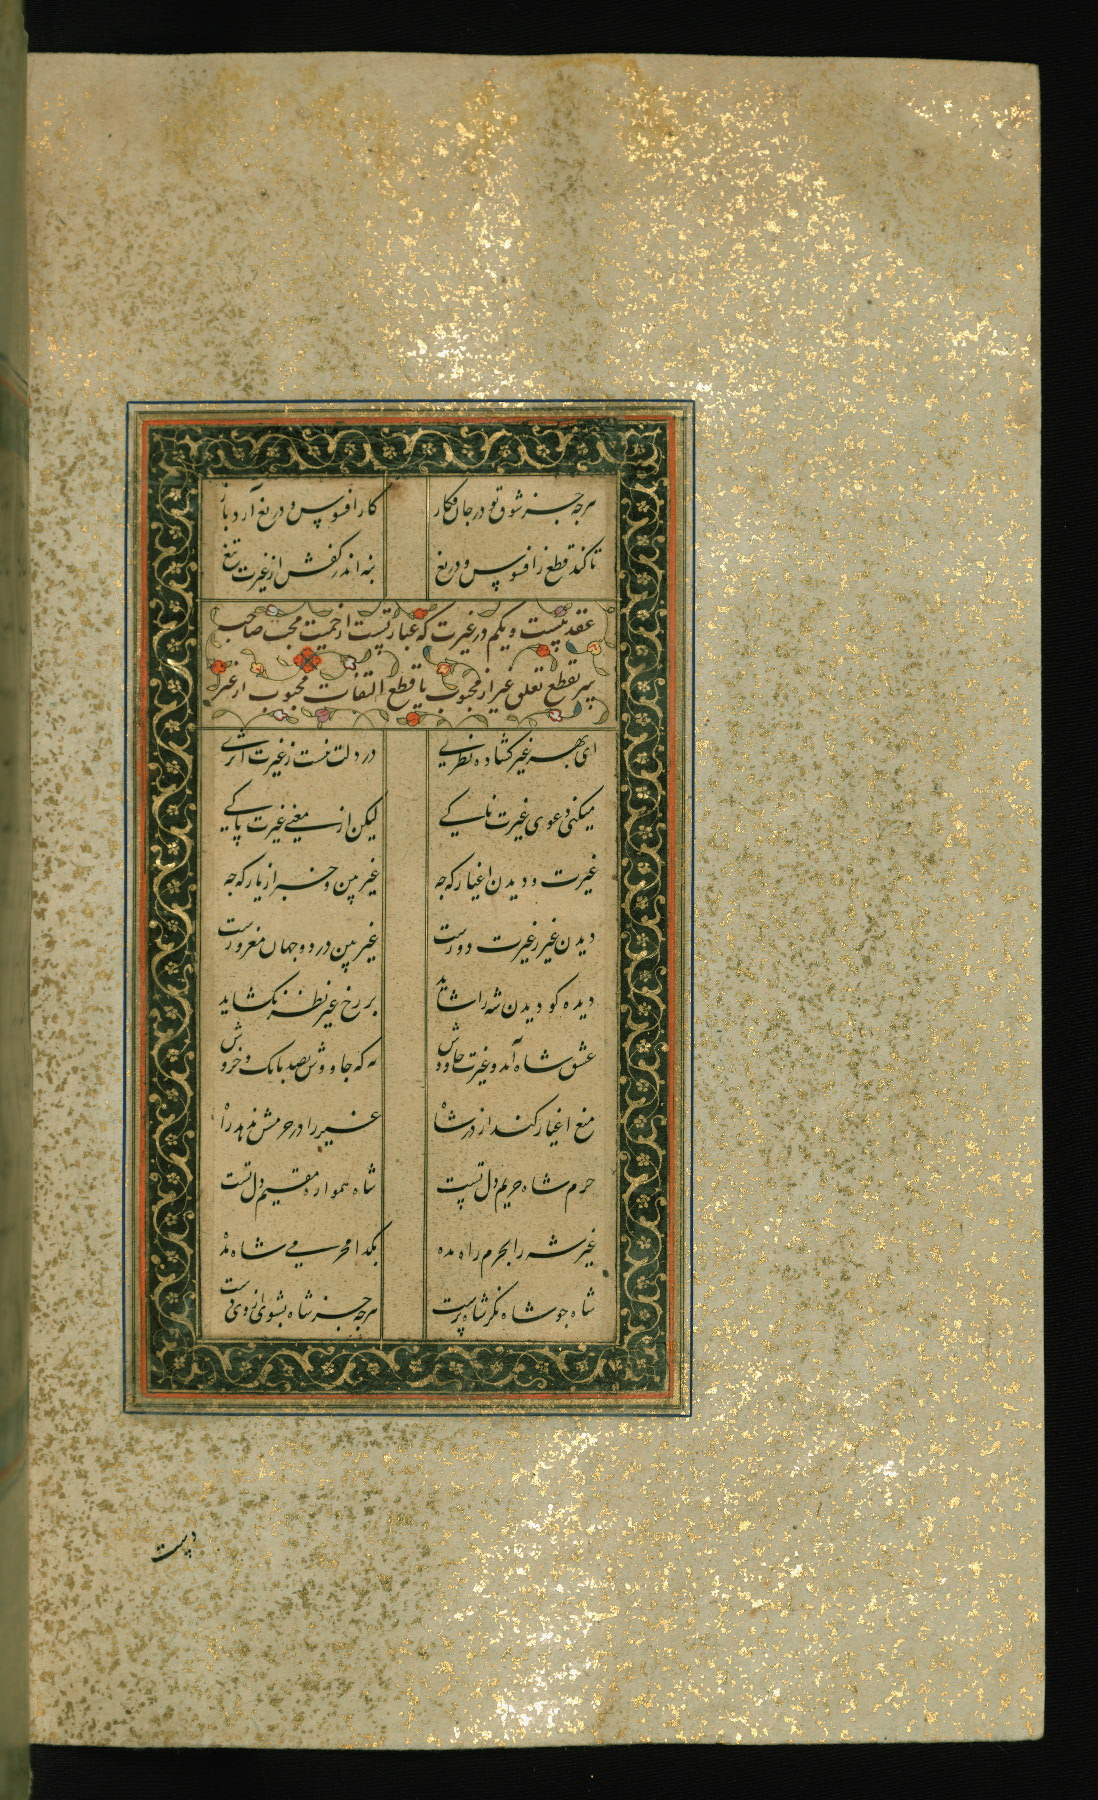 هرچه جز شوق تو در جان فکار کار افسوس و دریغ آرد باز
تا کند قطع ز افسوس و دریغ بنه اندر کفش از غیرت تیغ
عقد بیست و یکم در غیرت که عبارتست از حمیت محب صاحب
سیر بقطع تعلق غیر از محبوب یا قطع التفات محبوب از غیر
ای بهر غیر گشاده نظری در دلت نیست ز غیرت اثری
میکنی دعوی غیرت لیکن از معنی غیرت پاکی
غیرت و دیدن اغیار که چه غیر بین و خبر از یار که چه
دیدن غیر ز غیرت دورست غیر بین در دو جهان مغرورست
دیده کو دیدن شه را شاید بر رخ غیر نظر نگشاید
عشق شاه آمد و غیرت چاووش نه که چاووش بصد بانگ و خروش
منع اغیار کند از در شاه غیر را در حرمش ندهد راه
حرم شاه حریم دل تست شاه همواره مقیم دل تست
غیر شه را بحرم راه مده بگدا محرمی شاه مده
شاه جو شاه نگر شاه پرست هرچه جز شاه بشوی از وی دست
دست